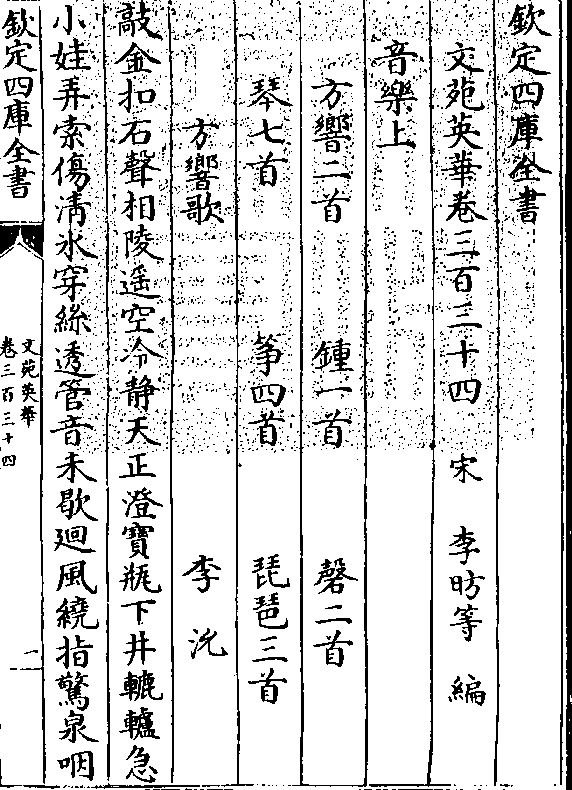 欽定四庫全書
文苑英華卷三百三十四　宋　李昉等　編
音樂上
方響二首　鍾一首　磬二首
琴七首　箏四首　琵琶三首
方響歌　李沇
敲金扣石聲相陵遥空冷静天正澄寶瓶下井轆轤急
小娃弄索傷清氷穿絲透管音未歇廻風繞指驚泉咽
欽定四庫全書
文苑英華
卷三百三十四
一